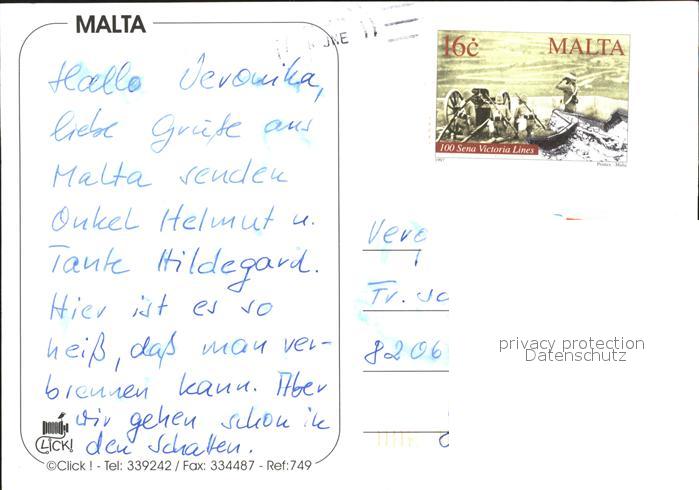 MALTA
16ċ MALTA
100 Sena Victoria Lines
1997
Printex - Malta
Hallo Veronika,
liebe Grüße aus
Malta senden
Onkel Helmut u.
Tante Hildegard.
Hier ist es so
heiß, daß man ver-
brennen kann. Aber
wir gehen schon in
den Schatten.
CLICK!
©Click ! - Tel: 339242 / Fax: 334487 - Ref:749
Vero
Fr. sc
8206
privacy protection
Datenschutz